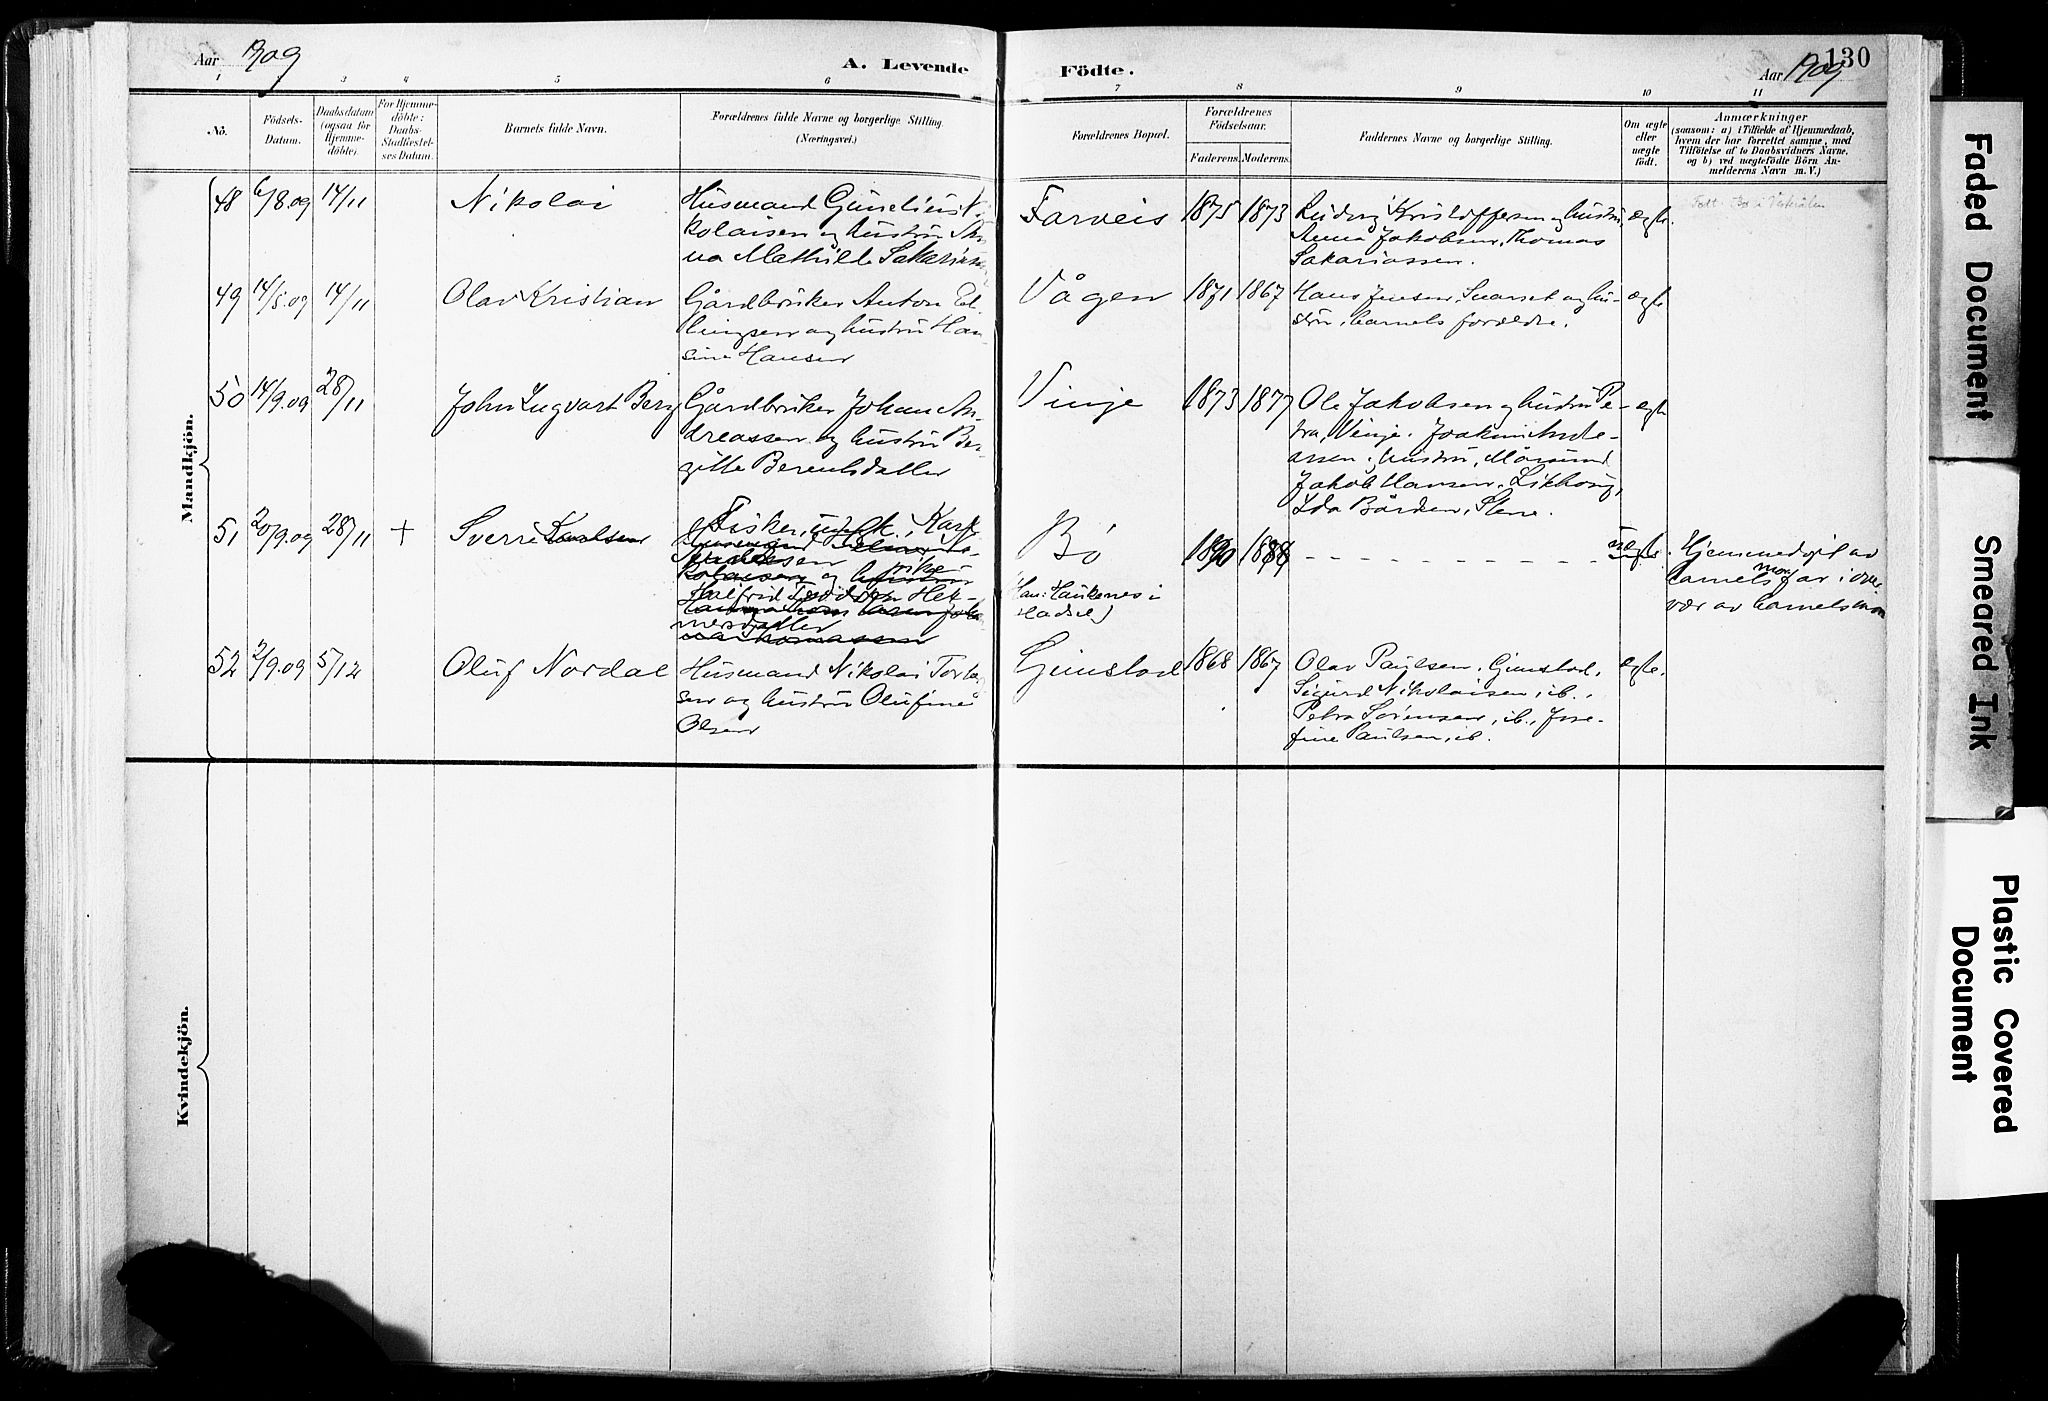 Aar 1909
A. Levende
Födte.
Aar 1909
130
1 2 3 4 5 6 7 8 9 10 11
No.
Födsels-
Datum.
Daabsdatum
(ogsaa for
Hjemme-
döbte).
For Hjemme-
döbte:
Daabs-
Stadfæstel-
ses Datum.
Barnets fulde Navn.
Forældrenes fulde Navne og borgerlige Stilling.
(Næringsvei.)
Forældrenes Bopæl.
Forældrenes
Födselsaar.
Faderens. Moderens.
Faddernes Navne og borgerlige Stilling.
Om ægte
eller
uægte
født.
Anmærkninger
(saasom: a) i Tilfælde af Hjemmedaab,
hvem der har forrettet samme, med
Tilföielse af to Daabsvidners Navne,
og b) ved uægtefödte Börn An-
melderens Navn m. V.)
Mandkjön.
48 6/8.09 14/11 Nikolai
Husmand Gunelius Ni-
kolaisen og hustru
Mathilde Sakariassen
Farveis 1875 1873
Kristoffersen og hustru,
Anna Jakobsen, Thomas
Sakariassen.
ægte.
Født: Bø i Vesterålen
49 14/8.09 14/11 Olav Kristian
Gårdbruker Anton El-
lingsen og hustru Han-
sine Hansen
Vågen 1871 1867
Hans Jensen, og hu-
stru, barnets foreldre.
ægte
50 14/9.09 28/11 John Ingvart Berg
Gårdbruker Johan An-
dreassen og hustru Ber-
gitte Berentsdatter
Vinje 1873 1877
Ole Jakobsen og hustru Pe-
tra, Vinje. Joakim Andre-
assen, hustru,
Jakob Hansen,
Ida Bårdsen, Stene.
ægte
51 20/9.09 28/11 + Sverre Karlsen
Fisker, ungk., Karl
og pike
Bø
(Han: Haukenes i
Hadsel)
1890 1888
- - - - - - - - - - - -
uægte.
Hjemmedøpt av
barnets far i
vær av barnets mor
52 2/9.09 5/12 Oluf Nordal
Husmand Nikolai
sen og hustru Olufine
Olsen
Gimstad 1868 1867
Olav Paulsen, Gimstad,
Sigurd Nikolaisen, ib.,
Petra Sørensen, ib., Jose-
fine Paulsen, ib.
ægte.
Kvindekjön.
Faded Document
Smeared Ink
Plastic Covered
Document